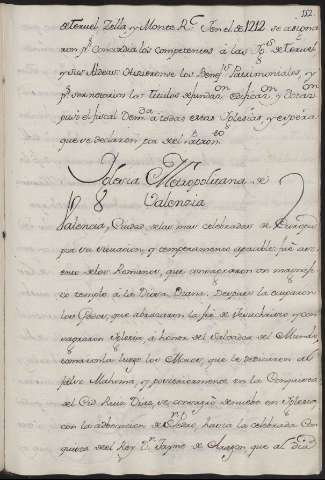 152.
de Teruel Zella, y Monte R.l Y en el de 1212 se asigna
ron p.r Concordia los competentes á las Yg.as de Teruel
y sus Aldeas. Hicieronse los Benef.s Patrimoniales, y
p.r ser notorios los titulos de fundac.on edificac.on y Dotac.on
puso el fiscal Dem.da a todas estas Yglesias, y espera
que se declaren ser del R.l Patron.to
Yglesia Metropolitana de
Valencia
Valencia, Ciudad de las mas celebradas de Europa
por su situacion, y temperamento apacible: fue
de los Romanos, que consagraron un magnifi
co templo á la Diosa Diana. Despues la ocuparon
los Godos, que abrazaron la fé de Jesuchristo y con
sagraron Yglesia á honor del Salvador del Mundo,
tomaronla luego los Moros, que la dedicaron al
falso Mahoma, y posteriormente en la Conquista
del Cid Ruiz Diaz, se consagró de nuevo en Yglesia,
con la advocacion de S.n Pedro, hasta la celebrada Con
quista del Rey D.n Jayme de Aragon que al dia